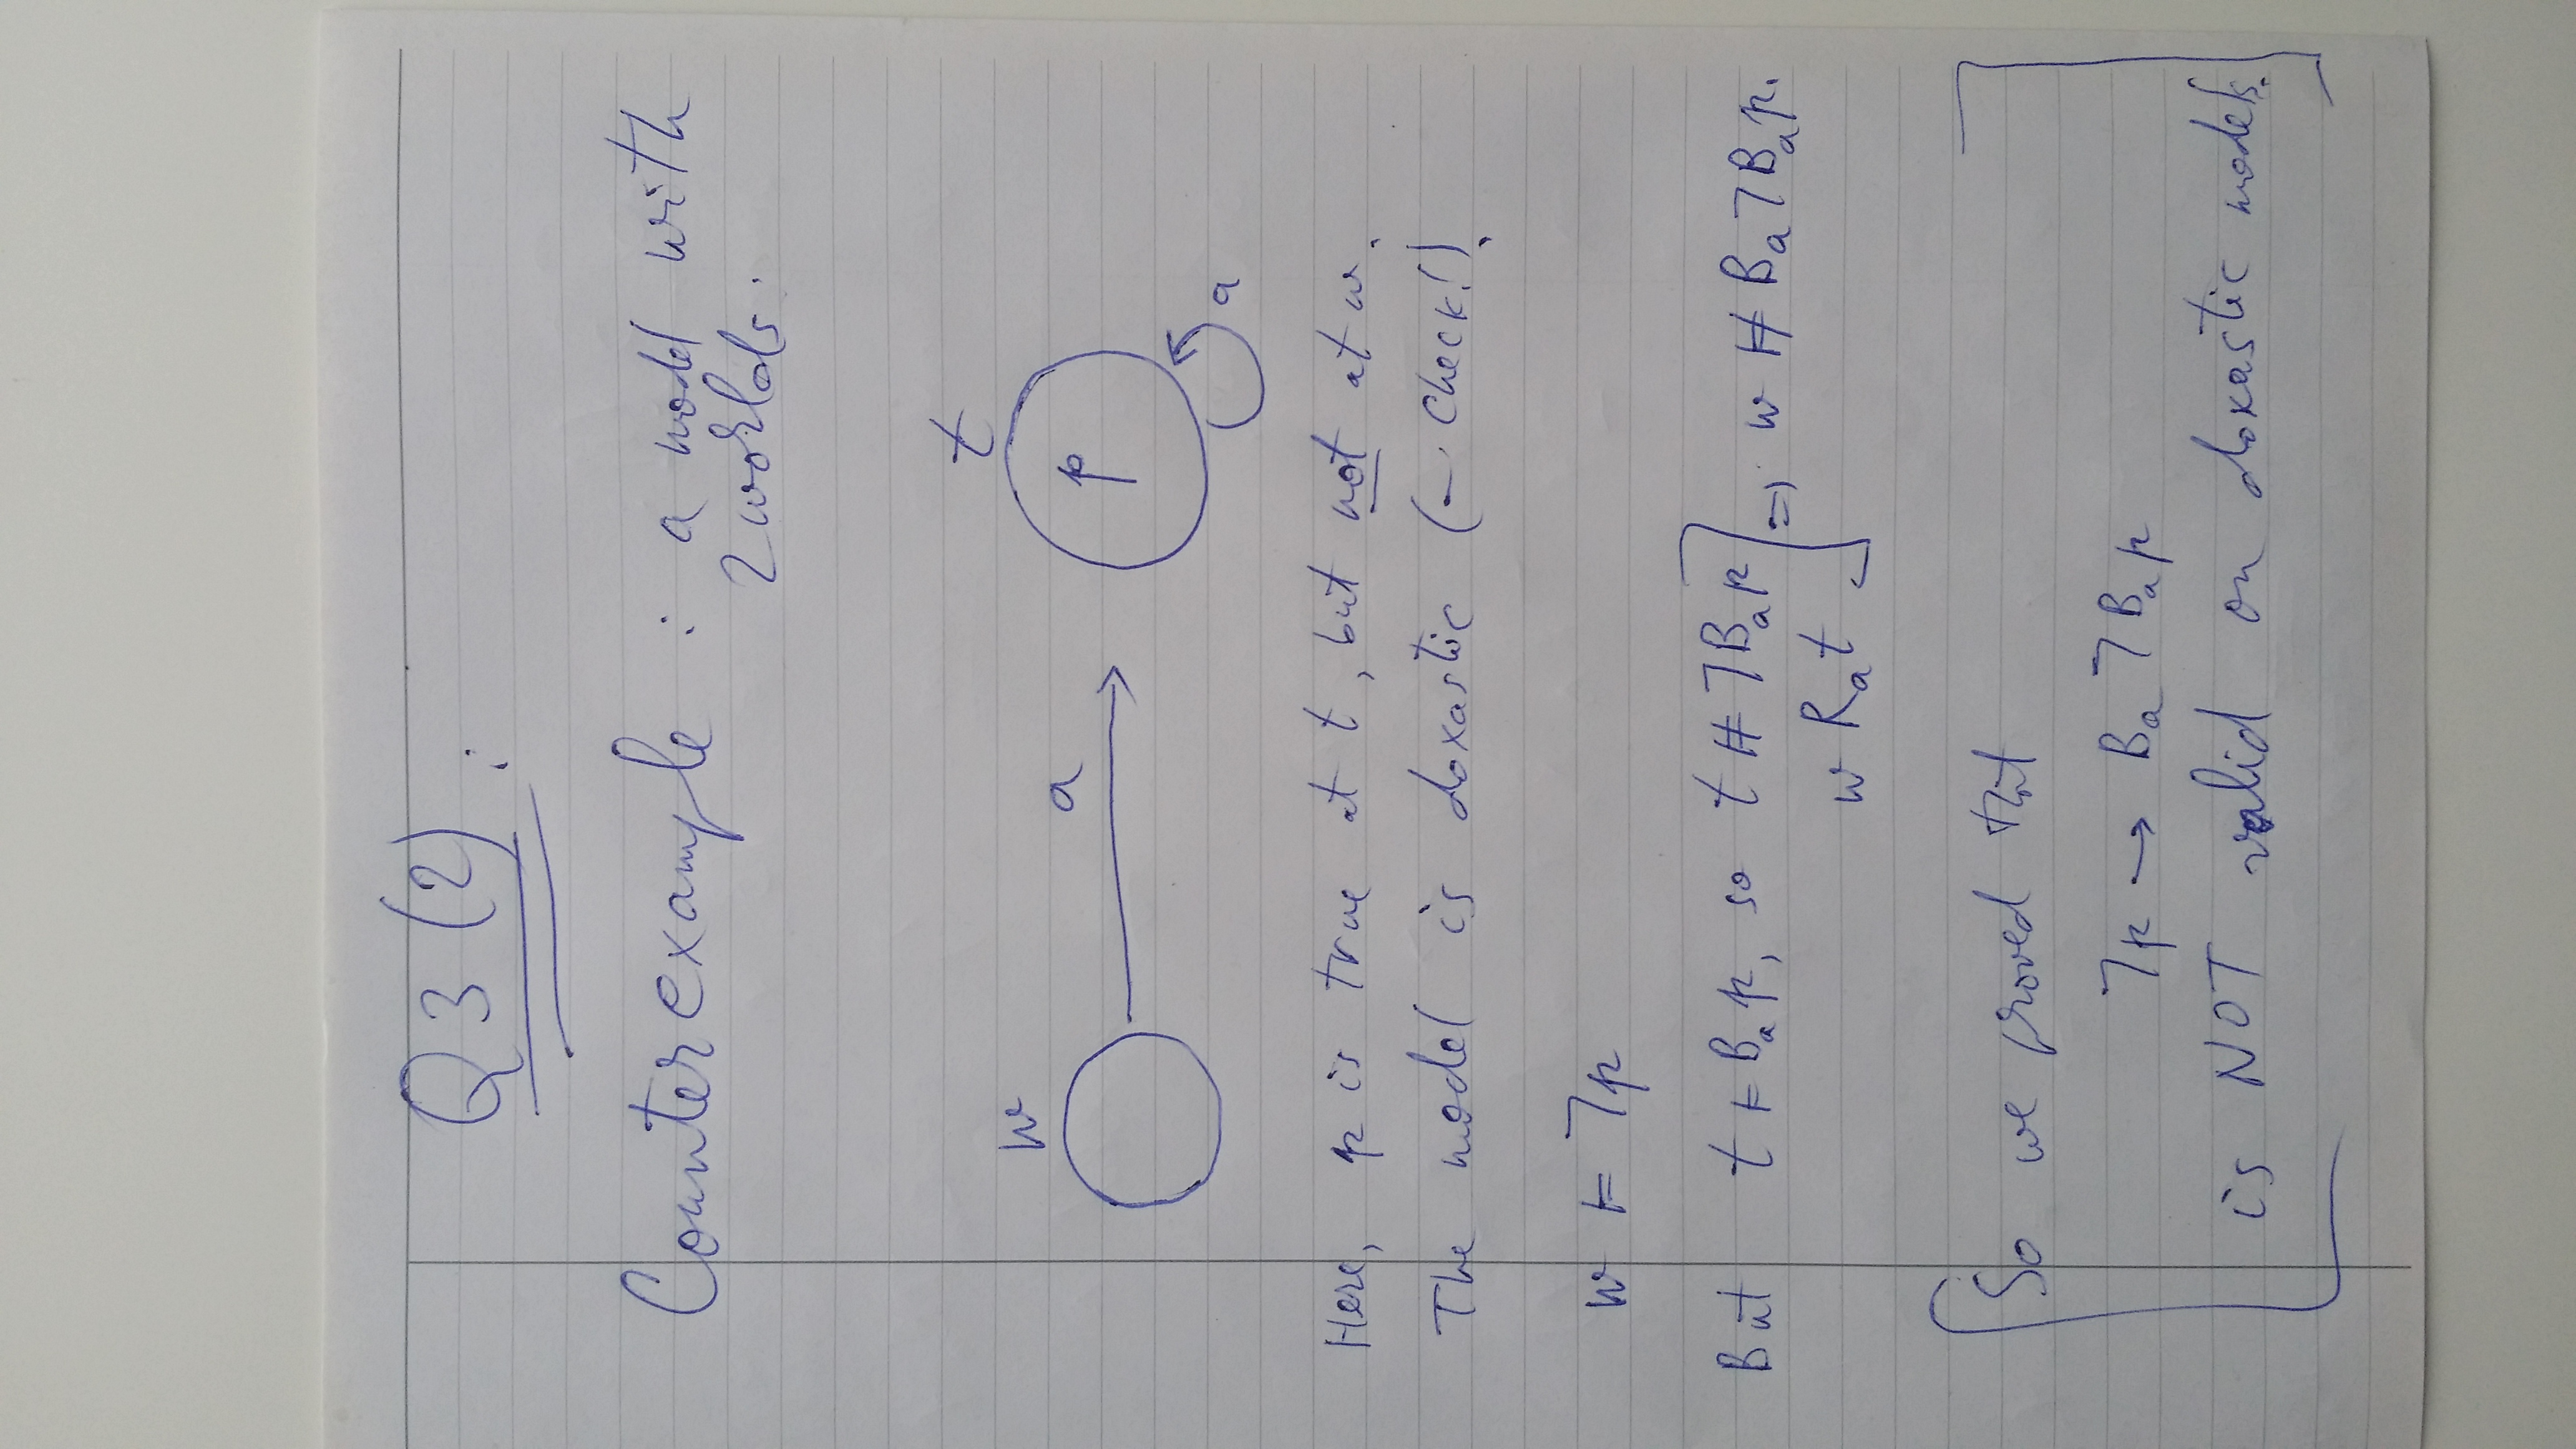 Q3(2):
Counterexample: a model with
2 worlds:
w a t
p
a
Here, p is true at t, but not at w.
The model is doxastic (← check!).
w ⊨ ¬p
But t ⊨ Bₐp, so t ⊭ ¬Bₐp ] ⇒ w ⊭ Bₐ¬Bₐp.
w Rₐt
So we proved that
¬p → Bₐ¬Bₐp
is NOT valid on doxastic models.